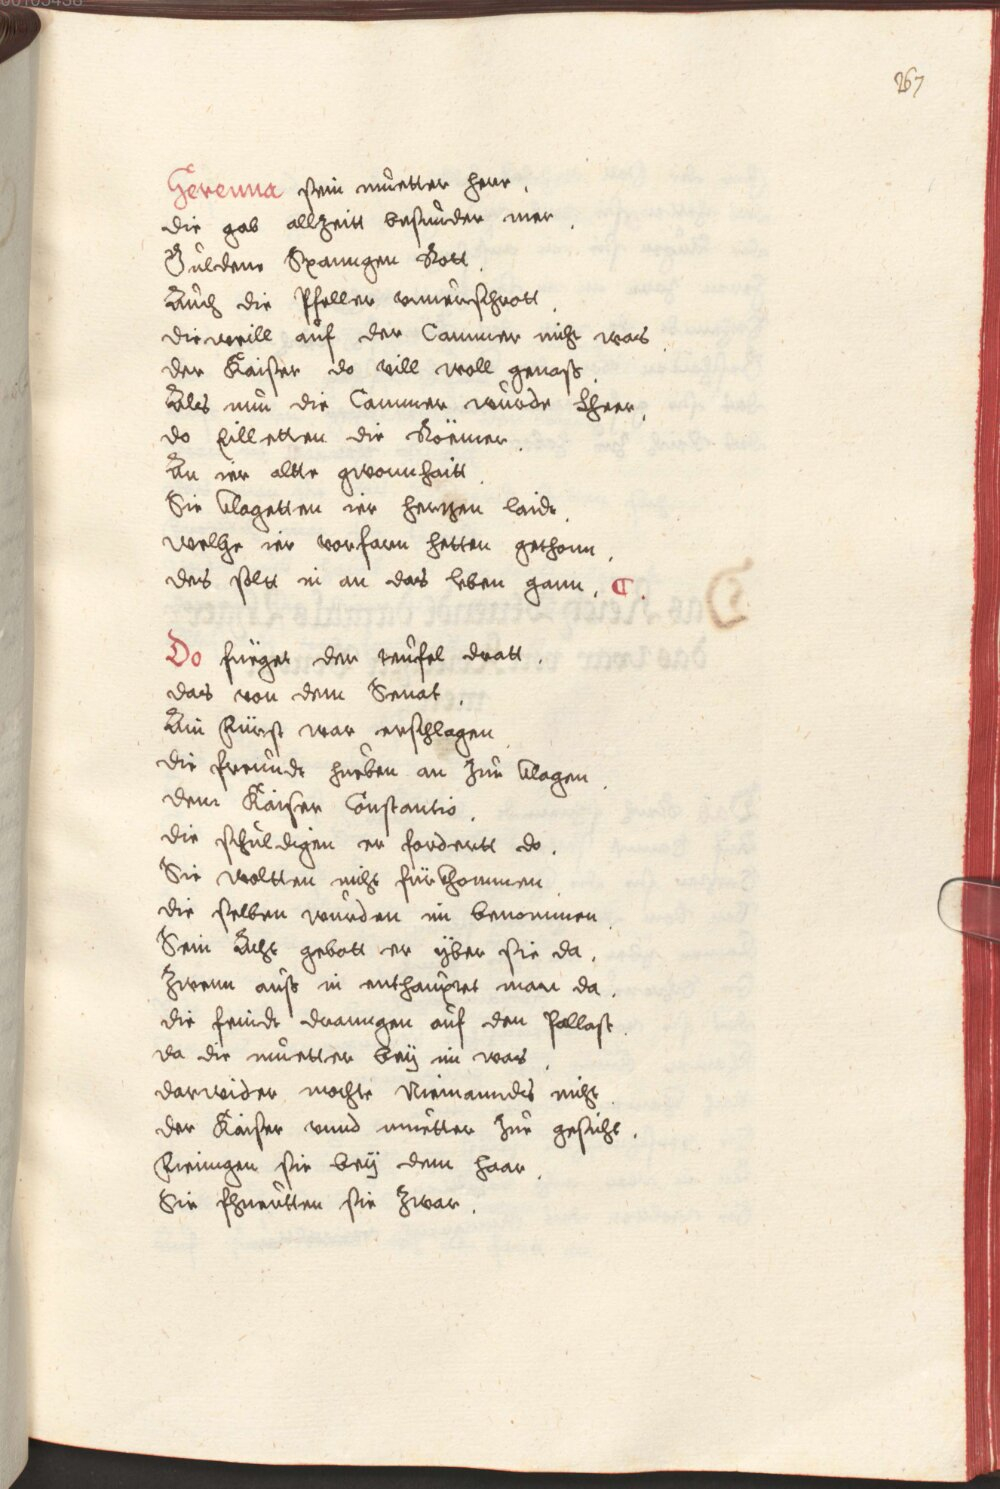 267
Herenna sein muetter herr.
die gab allzeitt besunder mer.
Gulden Spanngen Rott.
Auch die Pfeller vnuerschrott.
dieweill auf der Cammer nicht was.
der Kaiser do vill woll genaß.
Als nun die Cammer wurde Lheer.
do Eilletten die Roëmer.
An ier altte gwonnhaitt.
Sie klagetten ier hertzen laide.
welche ier vorfarn hetten gethonn.
des soltt in an das leben gann. C.
Do fueget der teufel dratt.
das von dem Senat.
Ain Fürst war erschlagen.
die freunde hueben an zur klagen.
dem Kaiser Constantio.
die schuldigen er fordertt do.
Sie woltten nicht fürkhommen.
die selben wurden im benommen.
Sein Acht gebott er yber sie da.
Zwenn auß in enthauptet man da.
die feinde dranngen auf den Pallast.
da die muetter bey im was.
darwider mochte Niemanndts nicht.
der Kaiser vnnd muetter zur gesicht.
Fiengen sie bey dem haar.
Sie schneitten sie zwar.